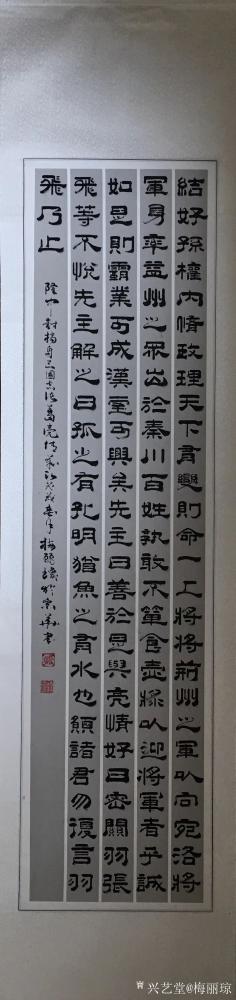 結好孫權内脩政理天下有變則命一上將將荊州之軍以向宛洛將
軍身率益州之眾出於秦川百姓孰敢不簞食壺漿以迎將軍者乎誠
如是則霸業可成漢室可興矣先主曰善於是與亮情好日密關羽張
飛等不悅先主解之曰孤之有孔明猶魚之有水也願諸君勿復言羽
飛乃止
隆中對摘自三國志諸葛亮傳歲次戊戌春月梅麗瓊於京華書
兴艺堂@梅丽琼